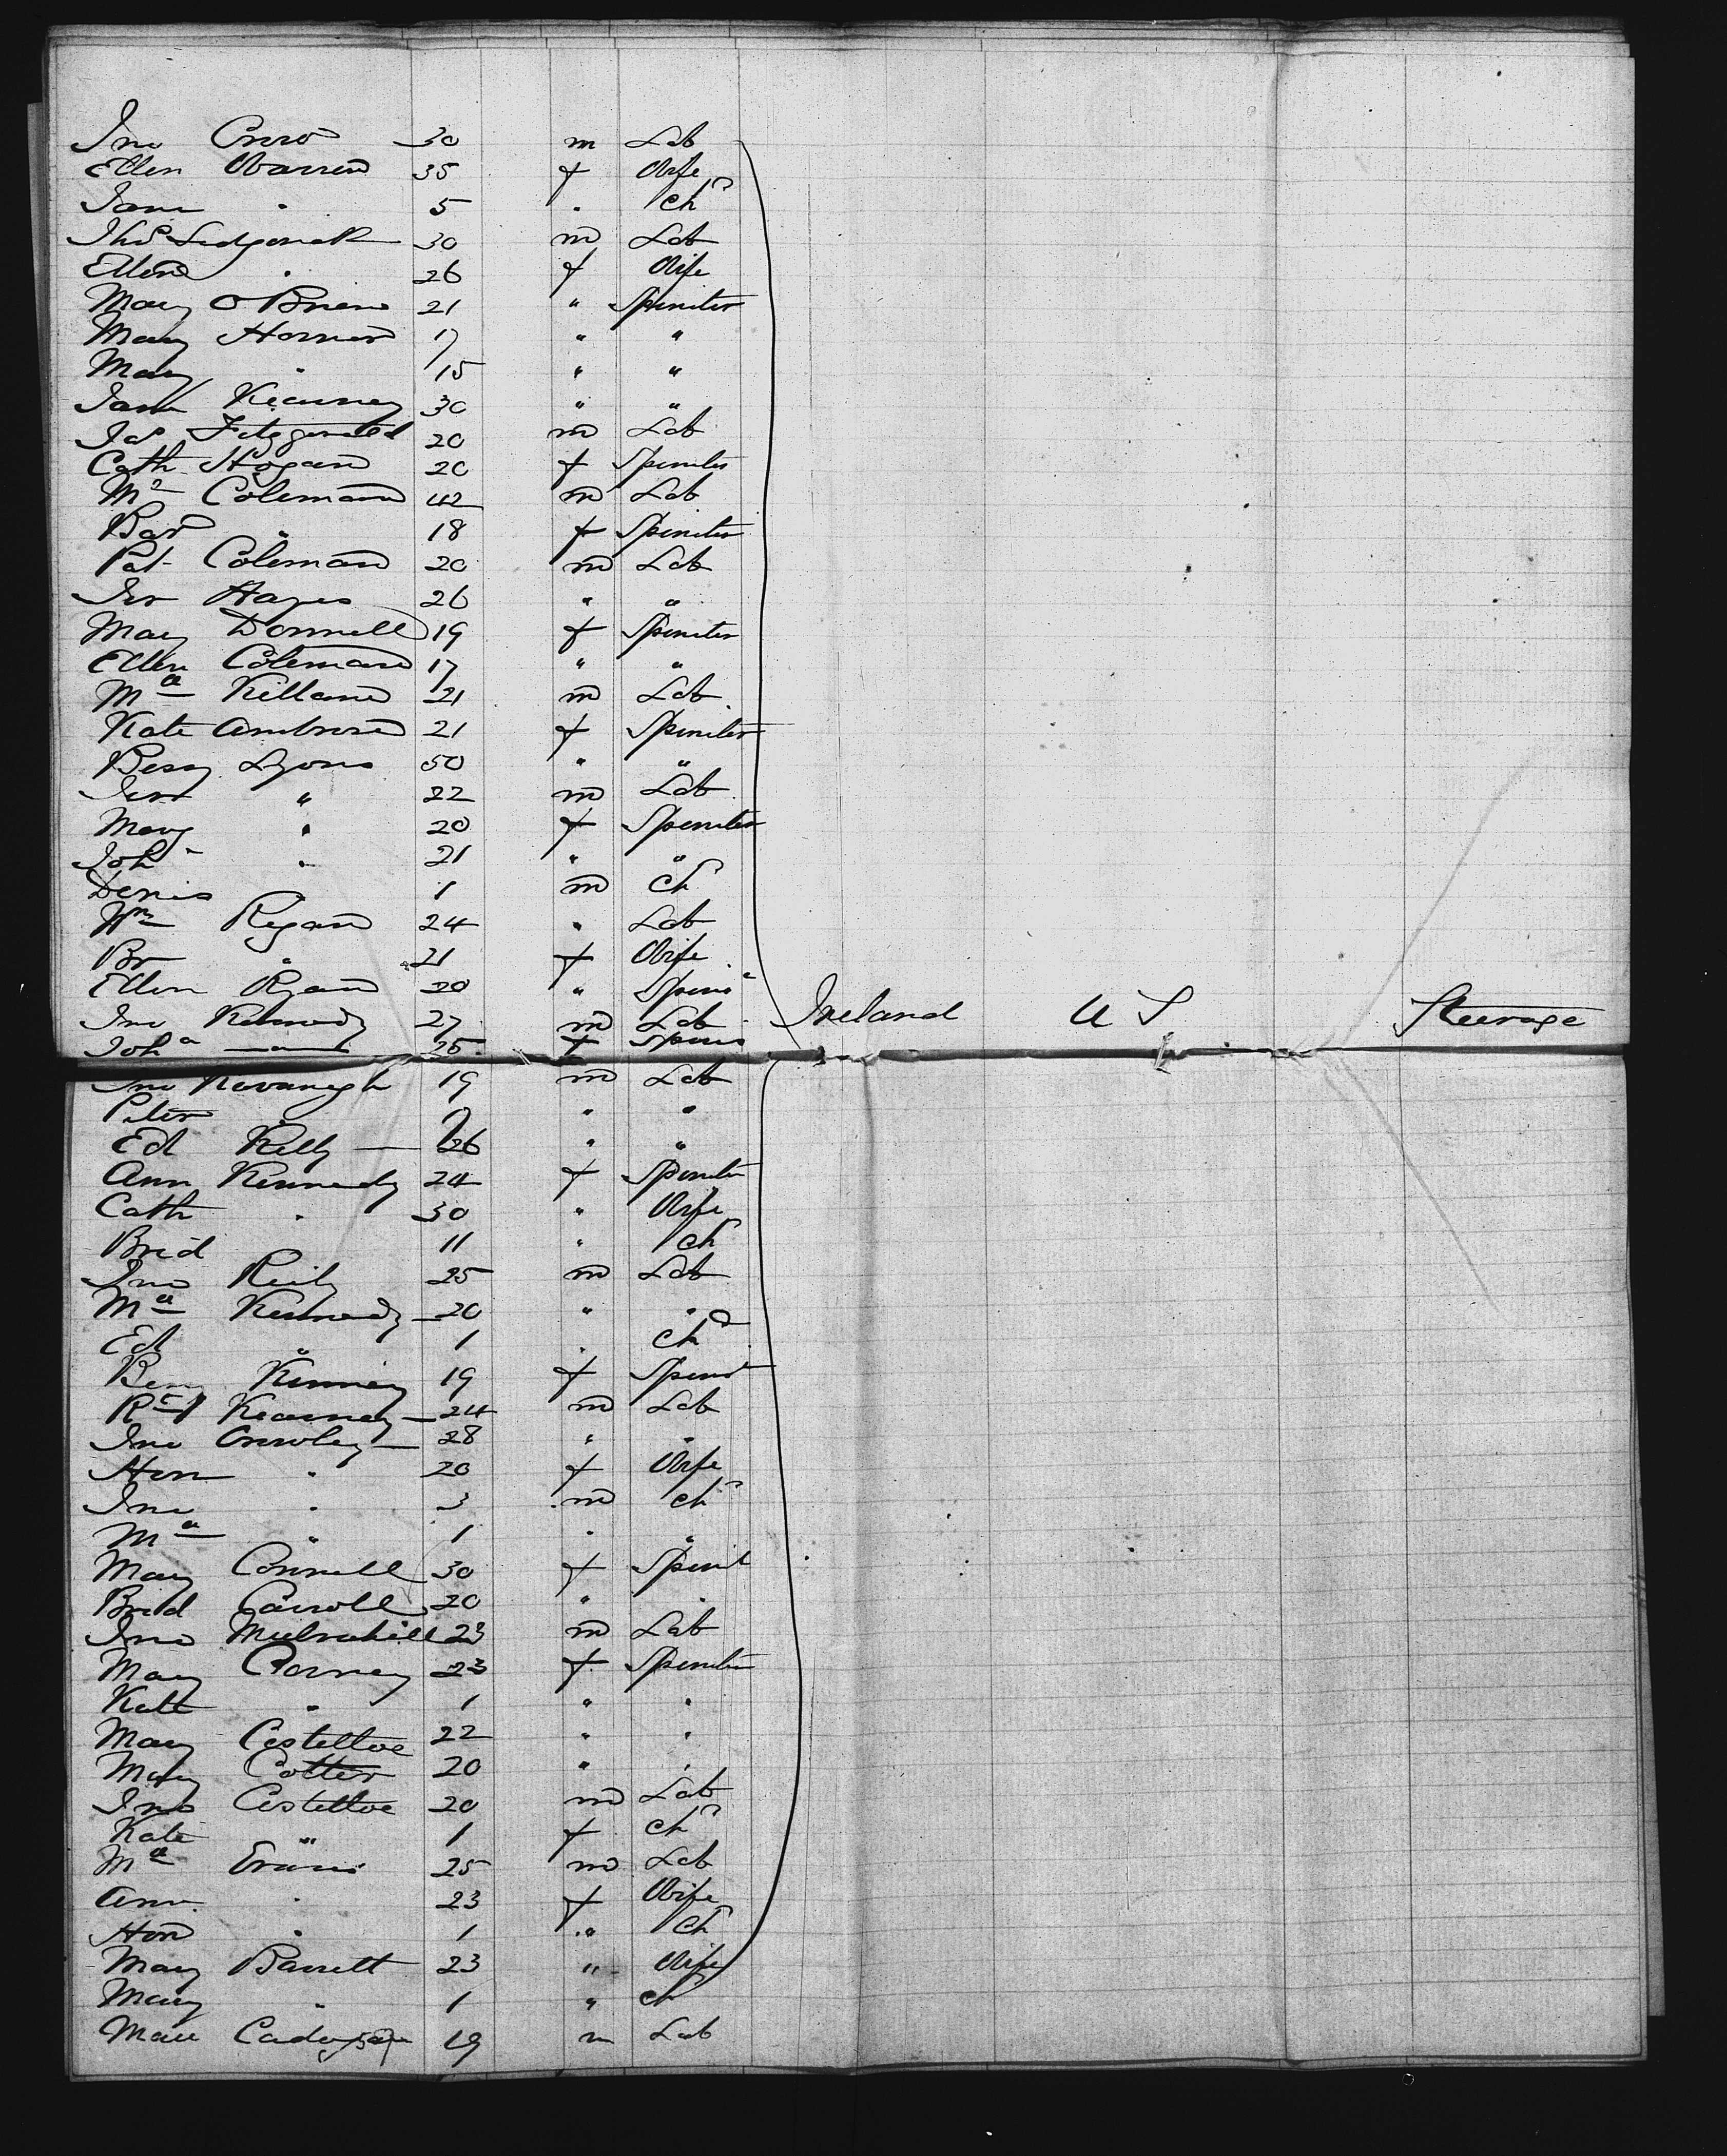 Jno Crow 30 m Lab
Ellen Warren 35 f Wife
Jane " 5 " Chd
Thos Sedgwick 30 m Lab
Ellen " 26 f Wife
Mary O Brien 21 " Spinster
Mary Horner 17 " "
Mary " 15 " "
Jane Kearney 30 " "
Jas Fitzgerald 20 m Lab
Cath Hogan 20 f Spinster
Coleman 42 m Lab
" 18 f Spinster
Pat Coleman 20 m Lab
Jer Hayes 26 " "
Mary Donnell 19 f Spinster
Ellen Coleman 17 " "
Ml Killane 21 m Lab
Kate Ambrose 21 f Spinster
Bessy Lyons 50 " "
Jer " 22 m Lab
Mary " 20 f Spinster
Joha " 21 " "
Denis 1 m Ch
Wm Regan 24 " Lab
Br " 21 f Wife
Ellen Ryan 20 " Spins
Jno Kennedy 27 m Lab Ireland U S Steerage
Joha " 25 f Spins
Jno Kavanagh 19 m Lab
Peter " " "
Ed Kelly 26 " "
Ann Kennedy 24 f Spinster
Cath " 30 " Wife
Brid 11 " Ch
Jno Reily 25 m Lab
Ml Kennedy 20 " "
Ed " 1 " Chd
Kinney 19 f Spinst
Kearney 24 m Lab
Jno Crowley 28 " "
Hon " 20 f Wife
Jno " 3 m Chd
Ml " 1 " "
Mary Connell 30 f Spinst
Brid Carroll 20 " "
Jno Mulvahill 23 m Lab
Mary 23 f Spinster
Kate " 1 " "
Mary Costelloe 22 " "
Mary Cotter 20 " "
Jno Costelloe 20 m Lab
Kate " 1 f Chd
Ml Evans 25 m Lab
Ann " 23 f Wife
Hon " 1 " Ch
Mary Barrett 23 " Wife
Mary " 1 " Ch
Cadogan 19 m Lab